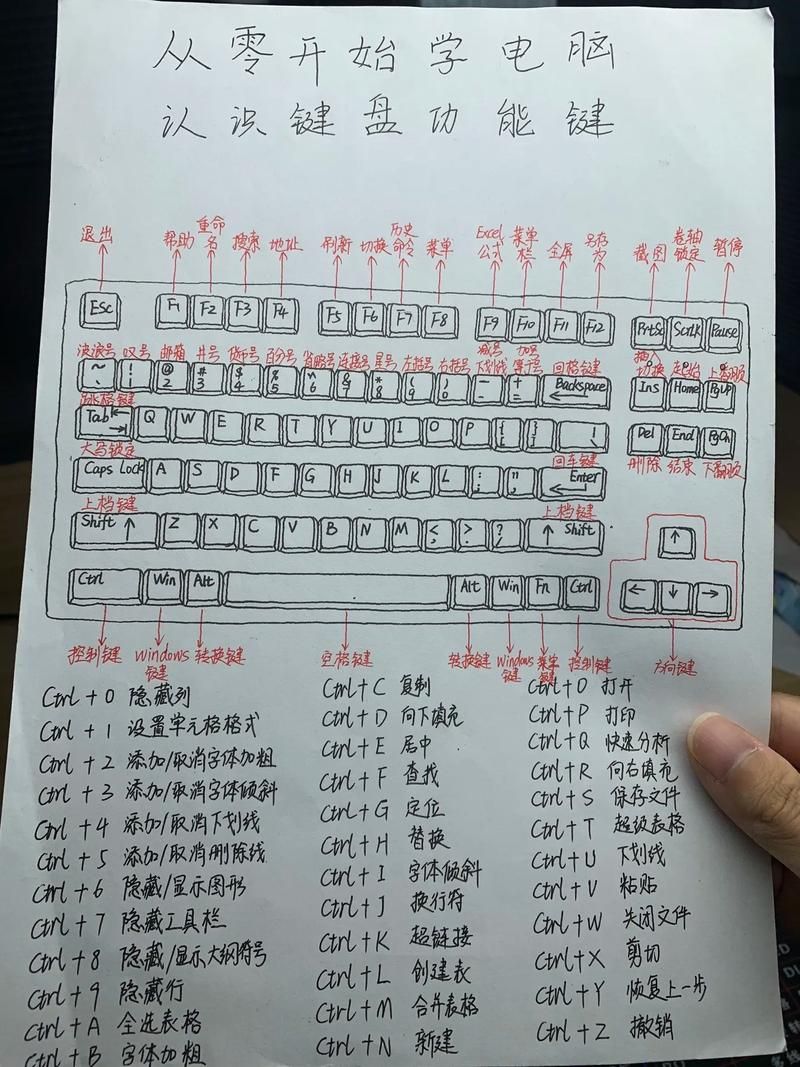 从零开始学电脑
认识键盘功能键
退出 帮助 重命名 搜索 地址 刷新 切换 历史命令 菜单 Excel公式 菜单栏 全屏 另存为 截图 卷轴锁定 暂停
ESC F1 F2 F3 F4 F5 F6 F7 F8 F9 F10 F11 F12 PrtSc ScrLK Pause
波浪号 叹号 邮箱 井号 货币号 百分号 省略号 连接号 星号 左括号 右括号 减号下划线 加号等于号 回格键 插入切换 起始 上翻页
~ ` ! 1 @ 2 # 3 $ 4 % 5 ^ 6 & 7 * 8 ( 9 ) 0 - - + = Backspace Ins Home PgUp
跳格键
Tab Q W E R T Y U I O P { [ } ] \ Del End PgDn
大写锁定 回车键 删除 结束 下翻页
Caps Lock A S D F G H J K L : ; " , Enter
上档键 上档键
Shift ↑ Z X C V B N M < , > . ? / ↑ Shift ↑
Ctrl Win Alt Alt Win Fn Ctrl ← ↓ →
控制键 Windows键 转换键 空格键 转换键 Windows键 菜字键 控制键 方向键
Ctrl + 0 隐藏列
Ctrl + 1 设置单元格格式
Ctrl + 2 添加/取消字体加粗
Ctrl + 3 添加/取消字体倾斜
Ctrl + 4 添加/取消下划线
Ctrl + 5 添加/取消删除线
Ctrl + 6 隐藏/显示图形
Ctrl + 7 隐藏工具栏
Ctrl + 8 隐藏/显示大纲符号
Ctrl + 9 隐藏行
Ctrl + A 全选表格
Ctrl + B 字体加粗
Ctrl + C 复制
Ctrl + D 向下填充
Ctrl + E 居中
Ctrl + F 查找
Ctrl + G 定位
Ctrl + H 替换
Ctrl + I 字体倾斜
Ctrl + J 换行符
Ctrl + K 超链接
Ctrl + L 创建表
Ctrl + M 合并表格
Ctrl + N 新建
Ctrl + O 打开
Ctrl + P 打印
Ctrl + Q 快速分析
Ctrl + R 向右填充
Ctrl + S 保存文件
Ctrl + T 超级表格
Ctrl + U 下划线
Ctrl + V 粘贴
Ctrl + W 关闭文件
Ctrl + X 剪切
Ctrl + Y 恢复上一步
Ctrl + Z 撤销